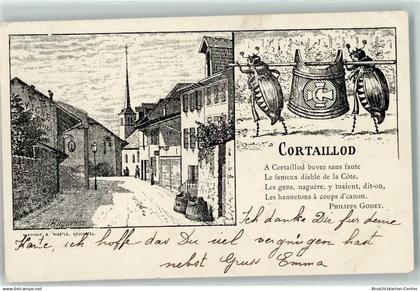 CORTAILLOD
A Cortaillod buvez sans faute
Le fameux diable de la Côte.
Les gens, naguère, y tuaient, dit-on,
Les hannetons à coups d'canon.
PHILIPPE GODET.
Ich danke Dir für deine
Karte, ich hoffe das Du viel vergnügen hast
nebst Gruss Emma
Ansichtskarten-Center